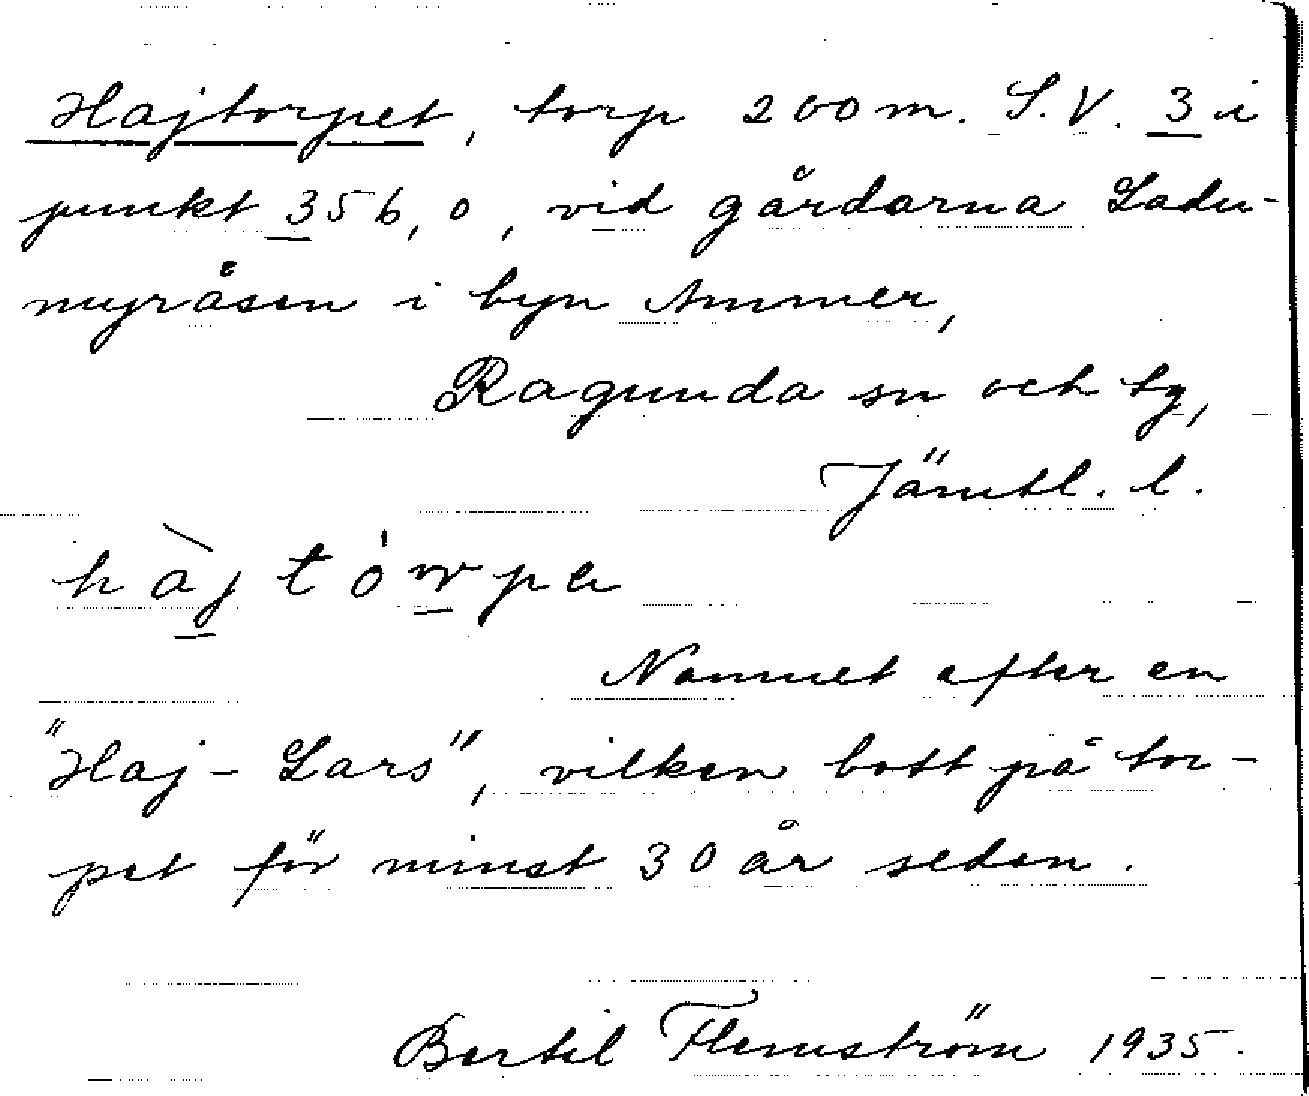 Hajtorpet, torp 200 m. S.V. 3 i
punkt 356,0, vid gårdarna Ladu-
myråsen i byn Ammer,
Ragunda sn och tg,
Jämtl. l.
hàj tórpa
Namnet efter en
"Haj-Lars", vilken bott på tor-
pet för minst 30 år sedan.
Bertil Flemström 1935.